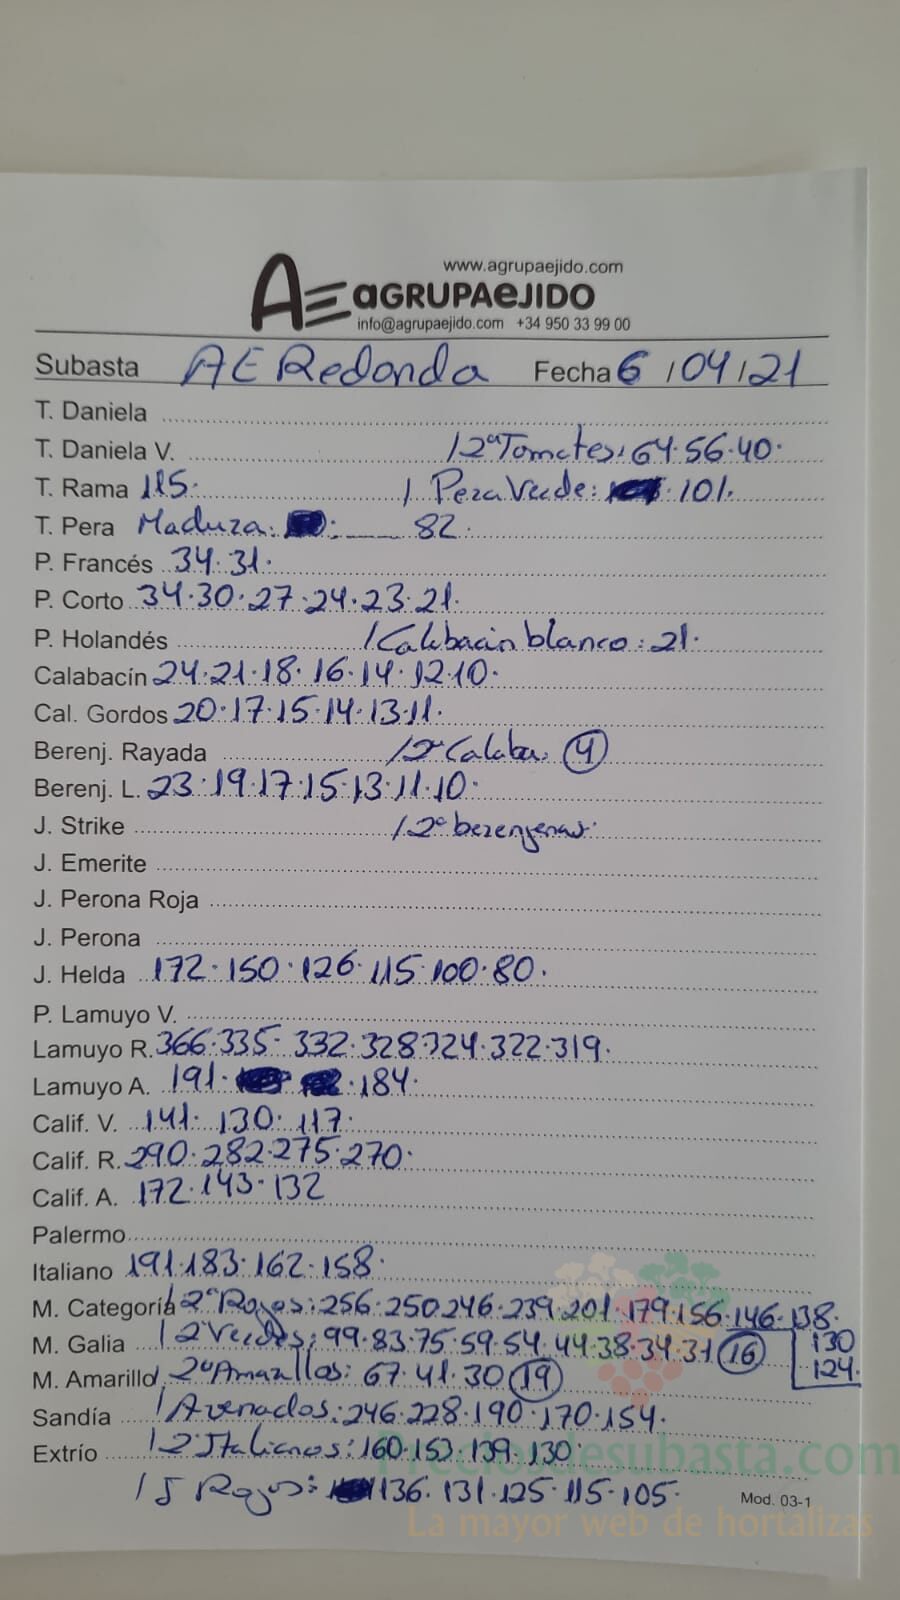 www.agrupaejido.com
AE aGRUPAeJIDO
info@agrupaejido.com +34 950 33 99 00
Subasta AE Redonda Fecha 6 / 04 / 21
T. Daniela
T. Daniela V. / 2ª Tomates: 64·56·40·
T. Rama 115· / Pera Verde: · 101·
T. Pera Madura: 82·
P. Francés 34·31·
P. Corto 34·30·27·24·23·21·
P. Holandés / Calabacin blanco: 21·
Calabacín 24·21·18·16·14·12·10·
Cal. Gordos 20·17·15·14·13·11·
Berenj. Rayada / 2ª Calaba. 4
Berenj. L. 23·19·17·15·13·11·10·
J. Strike / 2ª berenjenas·
J. Emerite
J. Perona Roja
J. Perona
J. Helda 172·150·126·115·100·80·
P. Lamuyo V.
Lamuyo R. 366·335·332·328·324·322·319·
Lamuyo A. 191· ·184·
Calif. V. 141·130·117·
Calif. R. 290·282·275·270·
Calif. A. 172·143·132
Palermo
Italiano 191·183·162·158·
M. Categoría / 2ª Rojos: 256·250·246·239·201·179·156·146·138·
M. Galia / 2 Verdes: 99·83·75·59·54·44·38·34·31 16 130
M. Amarillo / 2ª Amarillos: 67·41·30 19 124·
Sandía / Asurados: 246·228·190·170·154·
Extrío / 2 Italianos: 160·153·139·130·
/ J Rojos: 136·131·125·115·105·
Mod. 03-1
Preciosdesubasta.com
La mayor web de hortalizas